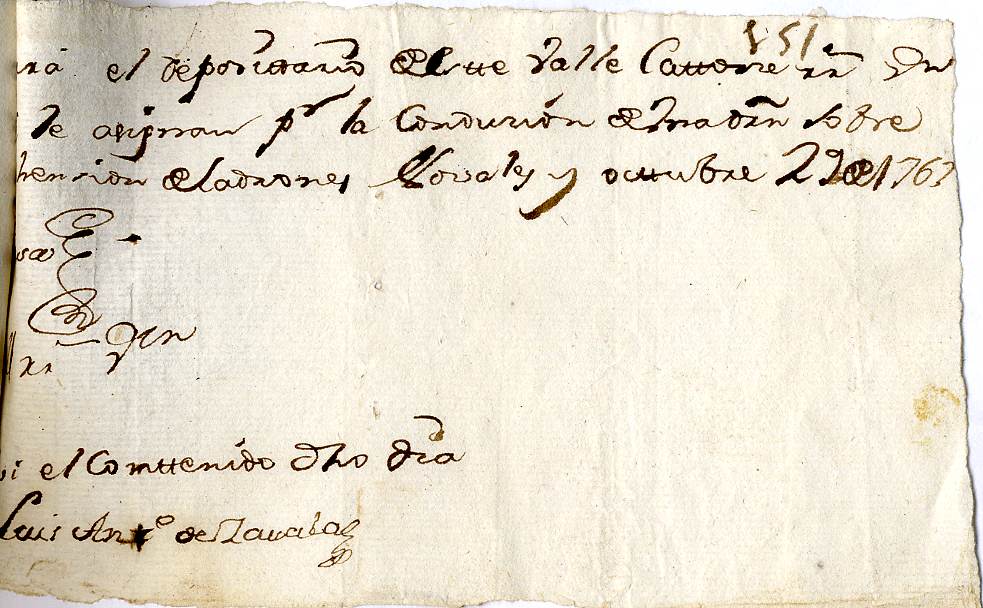 151
ará el deposittario deestte Valle Cattorse rrs Vn
le asignan pr la Condución de Vna orn sobre
hension de ladrones Novales y octtubre 29 de 1763
si el Conttenido dho dia
Luis Anto de Zavala